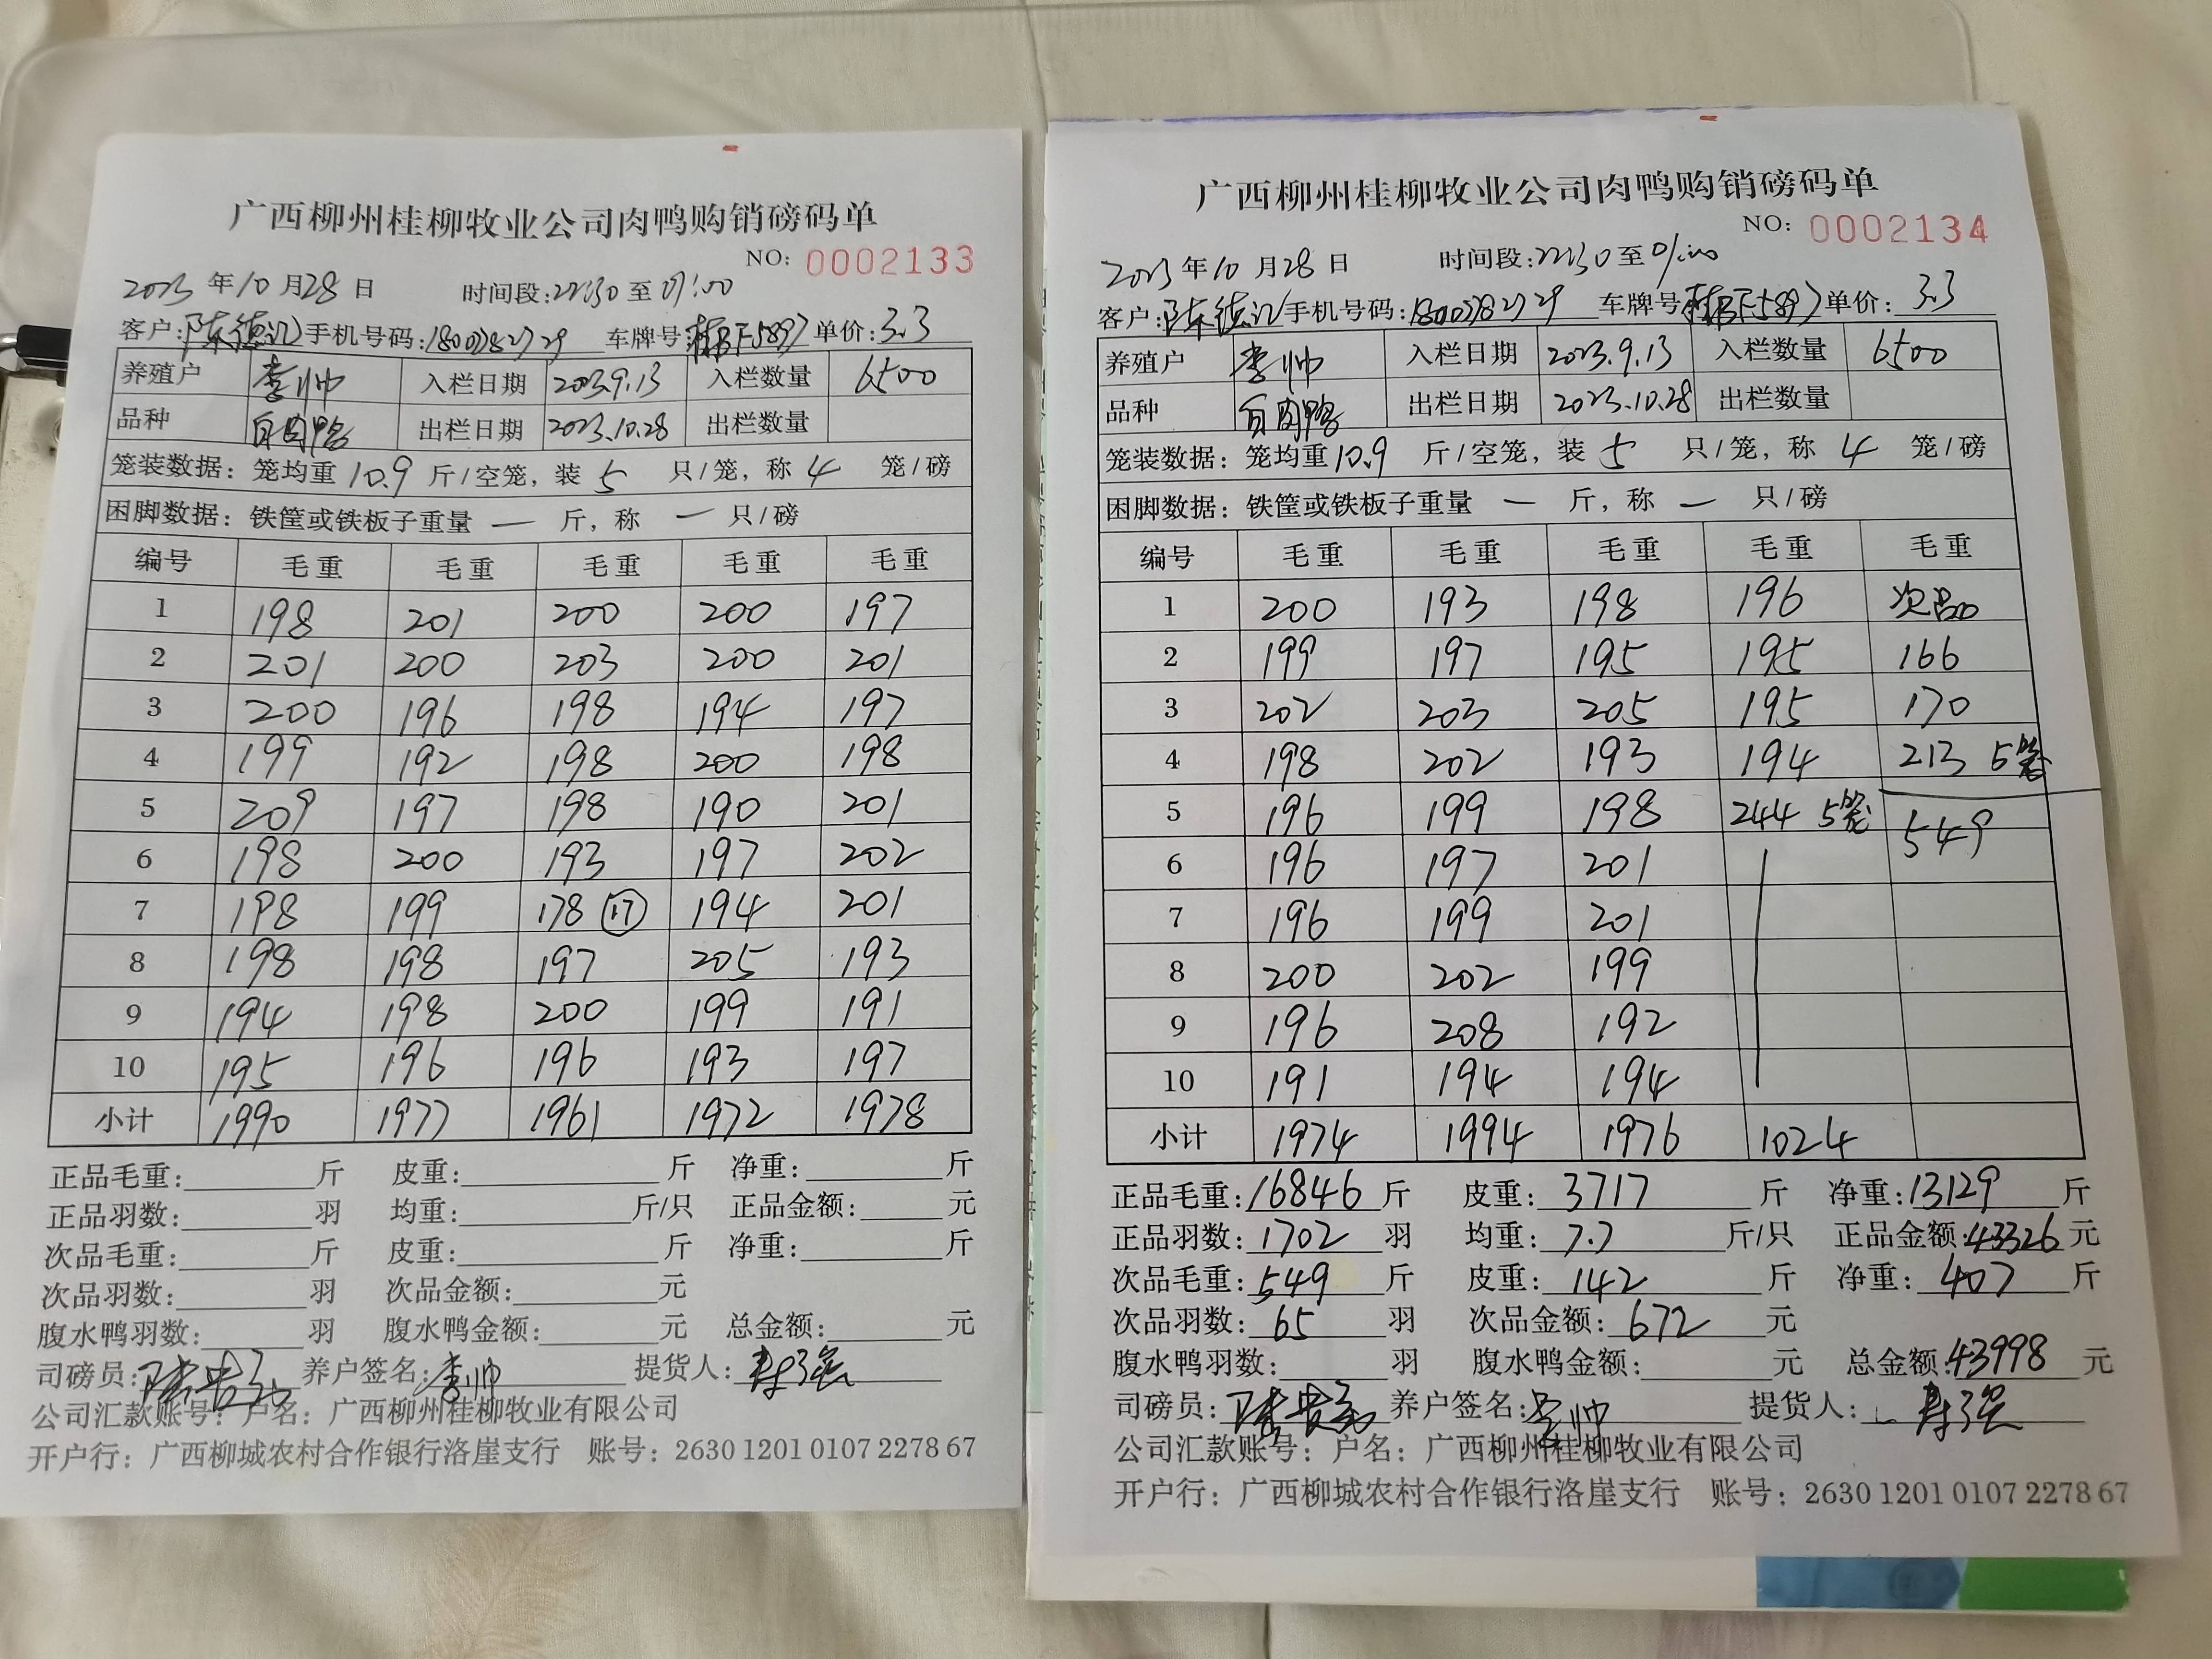 广西柳州桂柳牧业公司肉鸭购销磅码单
NO: 0002133
2023 年 10 月 28 日 时间段: 22:30 至 01:00
客户: 陈德 手机号码: 车牌号: 单价: 3.3
养殖户 李帅 入栏日期 2023.9.13 入栏数量 6500
品种 白肉鸭 出栏日期 2023.10.28 出栏数量
笼装数据: 笼均重 10.9 斤/空笼, 装 5 只/笼, 称 4 笼/磅
困脚数据: 铁筐或铁板子重量 — 斤, 称 — 只/磅
编号 毛重 毛重 毛重 毛重 毛重
1 198 201 200 200 197
2 201 200 203 200 201
3 200 196 198 194 197
4 199 192 198 200 198
5 209 197 198 190 201
6 198 200 193 197 202
7 198 199 178 ⑰ 194 201
8 198 198 197 205 193
9 194 198 200 199 191
10 195 196 196 193 197
小计 1990 1977 1961 1972 1978
正品毛重: 斤 皮重: 斤 净重: 斤
正品羽数: 羽 均重: 斤/只 正品金额: 元
次品毛重: 斤 皮重: 斤 净重: 斤
次品羽数: 羽 次品金额: 元
腹水鸭羽数: 羽 腹水鸭金额: 元 总金额: 元
司磅员: 养户签名: 李帅 提货人:
公司汇款账号: 户名: 广西柳州桂柳牧业有限公司
开户行: 广西柳城农村合作银行洛崖支行 账号: 2630 1201 0107 2278 67
广西柳州桂柳牧业公司肉鸭购销磅码单
NO: 0002134
2023 年 10 月 28 日 时间段: 22:30 至 01:00
客户: 陈德 手机号码: 车牌号 单价: 3.3
养殖户 李帅 入栏日期 2023.9.13 入栏数量 6500
品种 白肉鸭 出栏日期 2023.10.28 出栏数量
笼装数据: 笼均重 10.9 斤/空笼, 装 5 只/笼, 称 4 笼/磅
困脚数据: 铁筐或铁板子重量 — 斤, 称 — 只/磅
编号 毛重 毛重 毛重 毛重 毛重
1 200 193 198 196 次品
2 199 197 195 195 166
3 202 203 205 195 170
4 198 202 193 194 213 5笼
5 196 199 198 244 5笼 549
6 196 197 201
7 196 199 201
8 200 202 199
9 196 208 192
10 191 194 194
小计 1974 1994 1976 1024
正品毛重: 16846 斤 皮重: 3717 斤 净重: 13129 斤
正品羽数: 1702 羽 均重: 7.7 斤/只 正品金额: 43326 元
次品毛重: 549 斤 皮重: 142 斤 净重: 407 斤
次品羽数: 65 羽 次品金额: 672 元
腹水鸭羽数: 羽 腹水鸭金额: 元 总金额: 43998 元
司磅员: 养户签名: 李帅 提货人:
公司汇款账号: 户名: 广西柳州桂柳牧业有限公司
开户行: 广西柳城农村合作银行洛崖支行 账号: 2630 1201 0107 2278 67